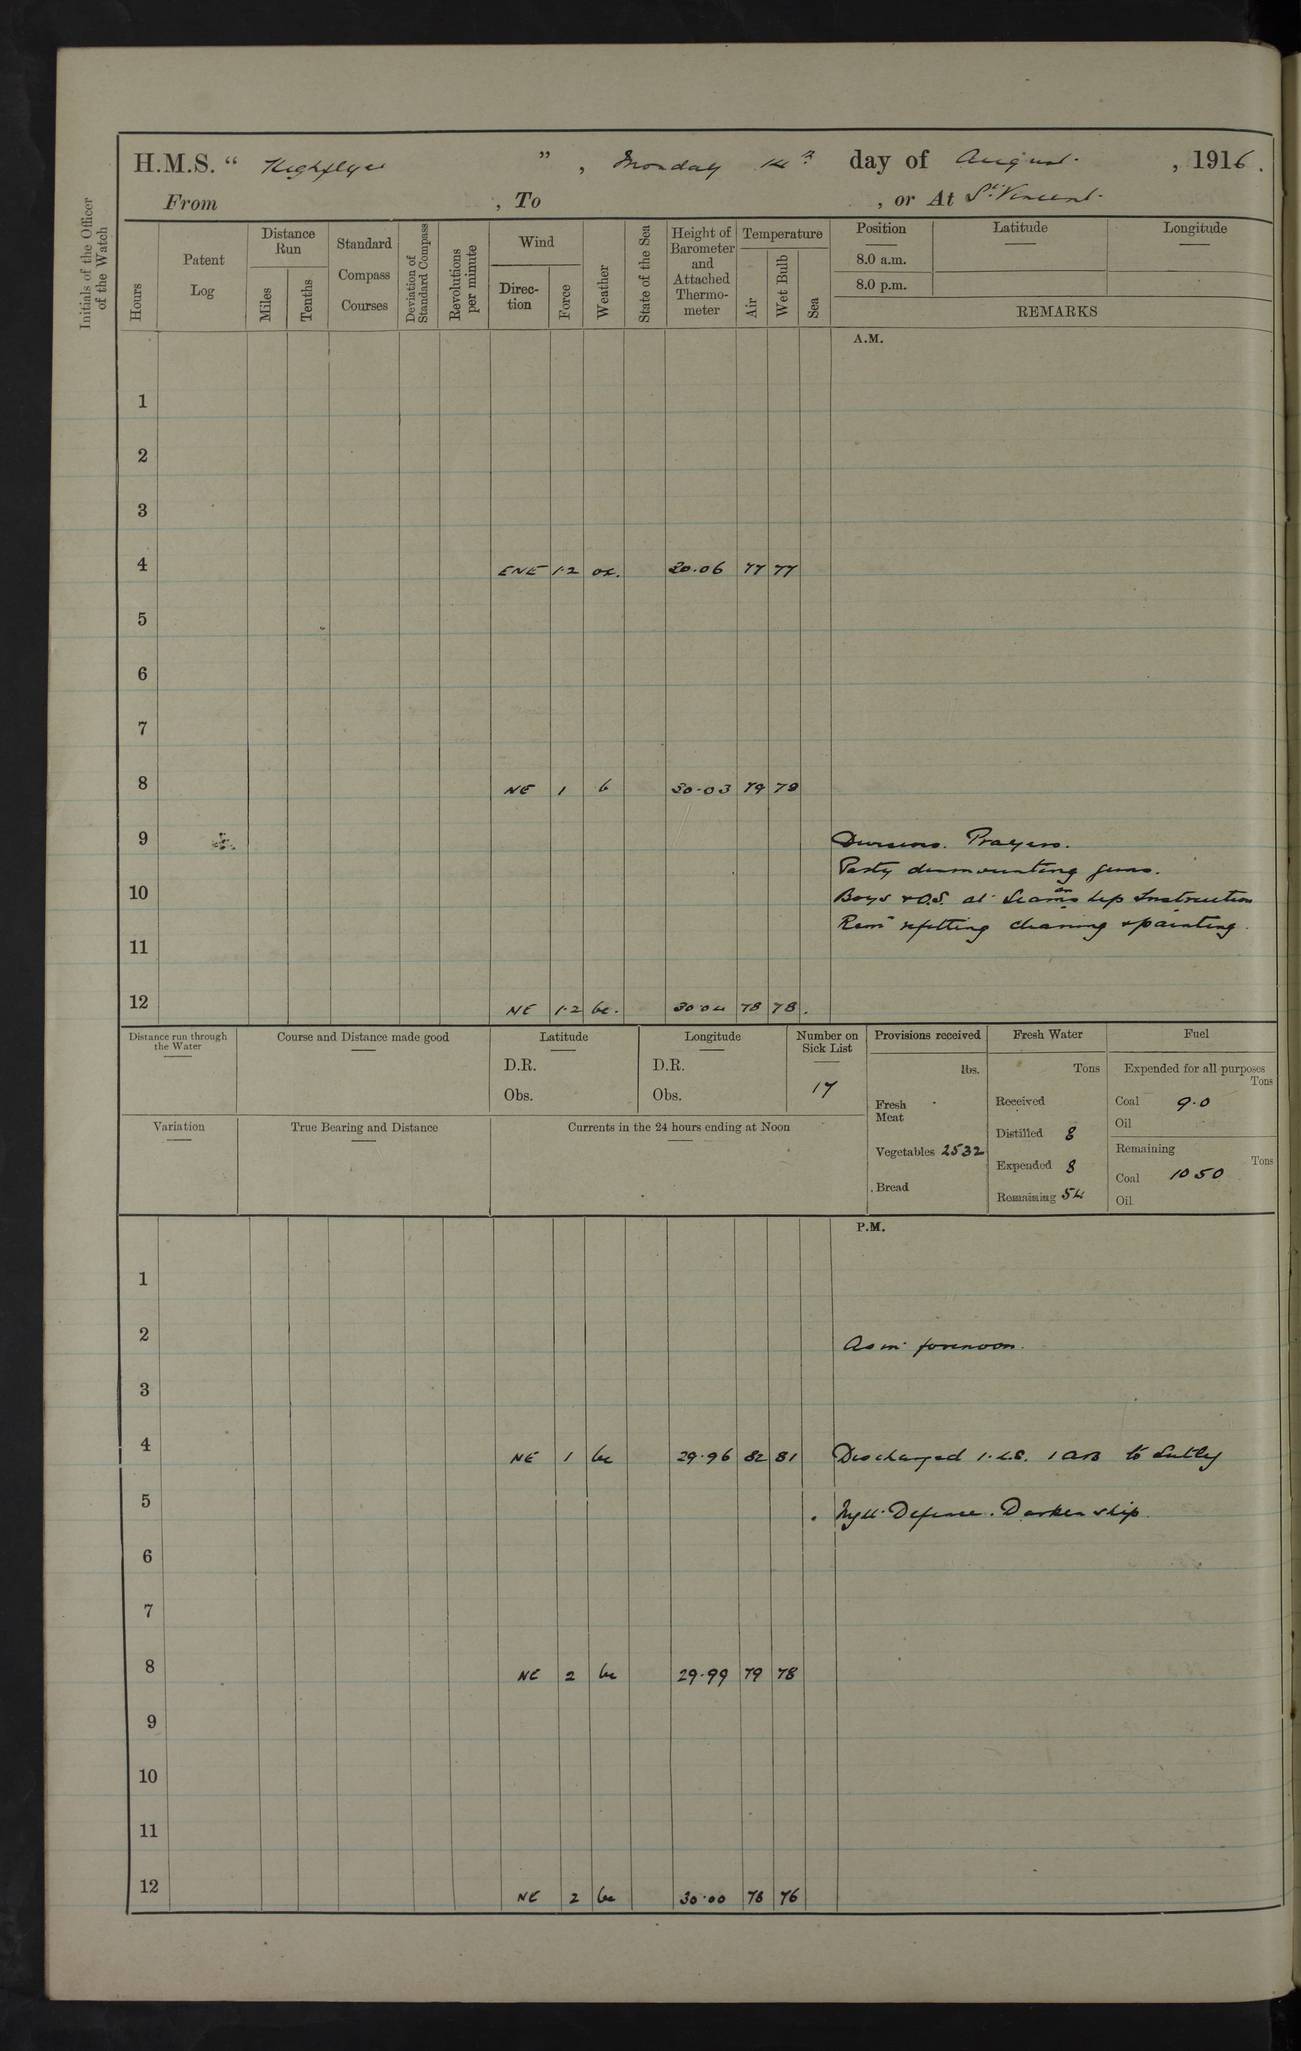 H.M.S. “ Highflyer ” , Monday 14th day of August , 1916.
From , To , or At St Vincent
Initials of the Officer of the Watch
Hours
Patent Log
Distance Run
Miles
Tenths
Standard Compass Courses
Deviation of Standard Compass
Revolutions per minute
Wind
Direc-tion
Force
Weather
State of the Sea
Height of Barometer and Attached Thermo-meter
Temperature
Air
Wet Bulb
Sea
Position
8.0 a.m.
8.0 p.m.
Latitude
Longitude
REMARKS
A.M.
1
2
3
4 ENE 1·2 oc. 30.06 77 77
5
6
7
8 NE 1 b 30.03 79 78
9 Divisions. Prayers.
Party dismounting guns.
10 Boys & O.S. at Seamanship Instruction
Remr refitting cleaning & painting.
11
12 NE 1·2 bc. 30.04 78 78
Distance run through the Water
Course and Distance made good
Latitude
D.R.
Obs.
Longitude
D.R.
Obs.
Number on Sick List
17
Provisions received
lbs.
Fresh Meat
Vegetables 2532
Bread
Fresh Water
Tons
Received
Distilled 8
Expended 8
Remaining 54
Fuel
Expended for all purposes
Tons
Coal 9.0
Oil
Remaining
Tons
Coal 1050
Oil
Variation
True Bearing and Distance
Currents in the 24 hours ending at Noon
P.M.
1
2 As in forenoon.
3
4 NE 1 bc 29.96 82 81 Discharged 1 L.S. 1 AB to Sutlej
5 Night Defence. Darken ship.
6
7
8 NE 2 bc 29.99 79 78
9
10
11
12 NE 2 bc 30.00 78 76